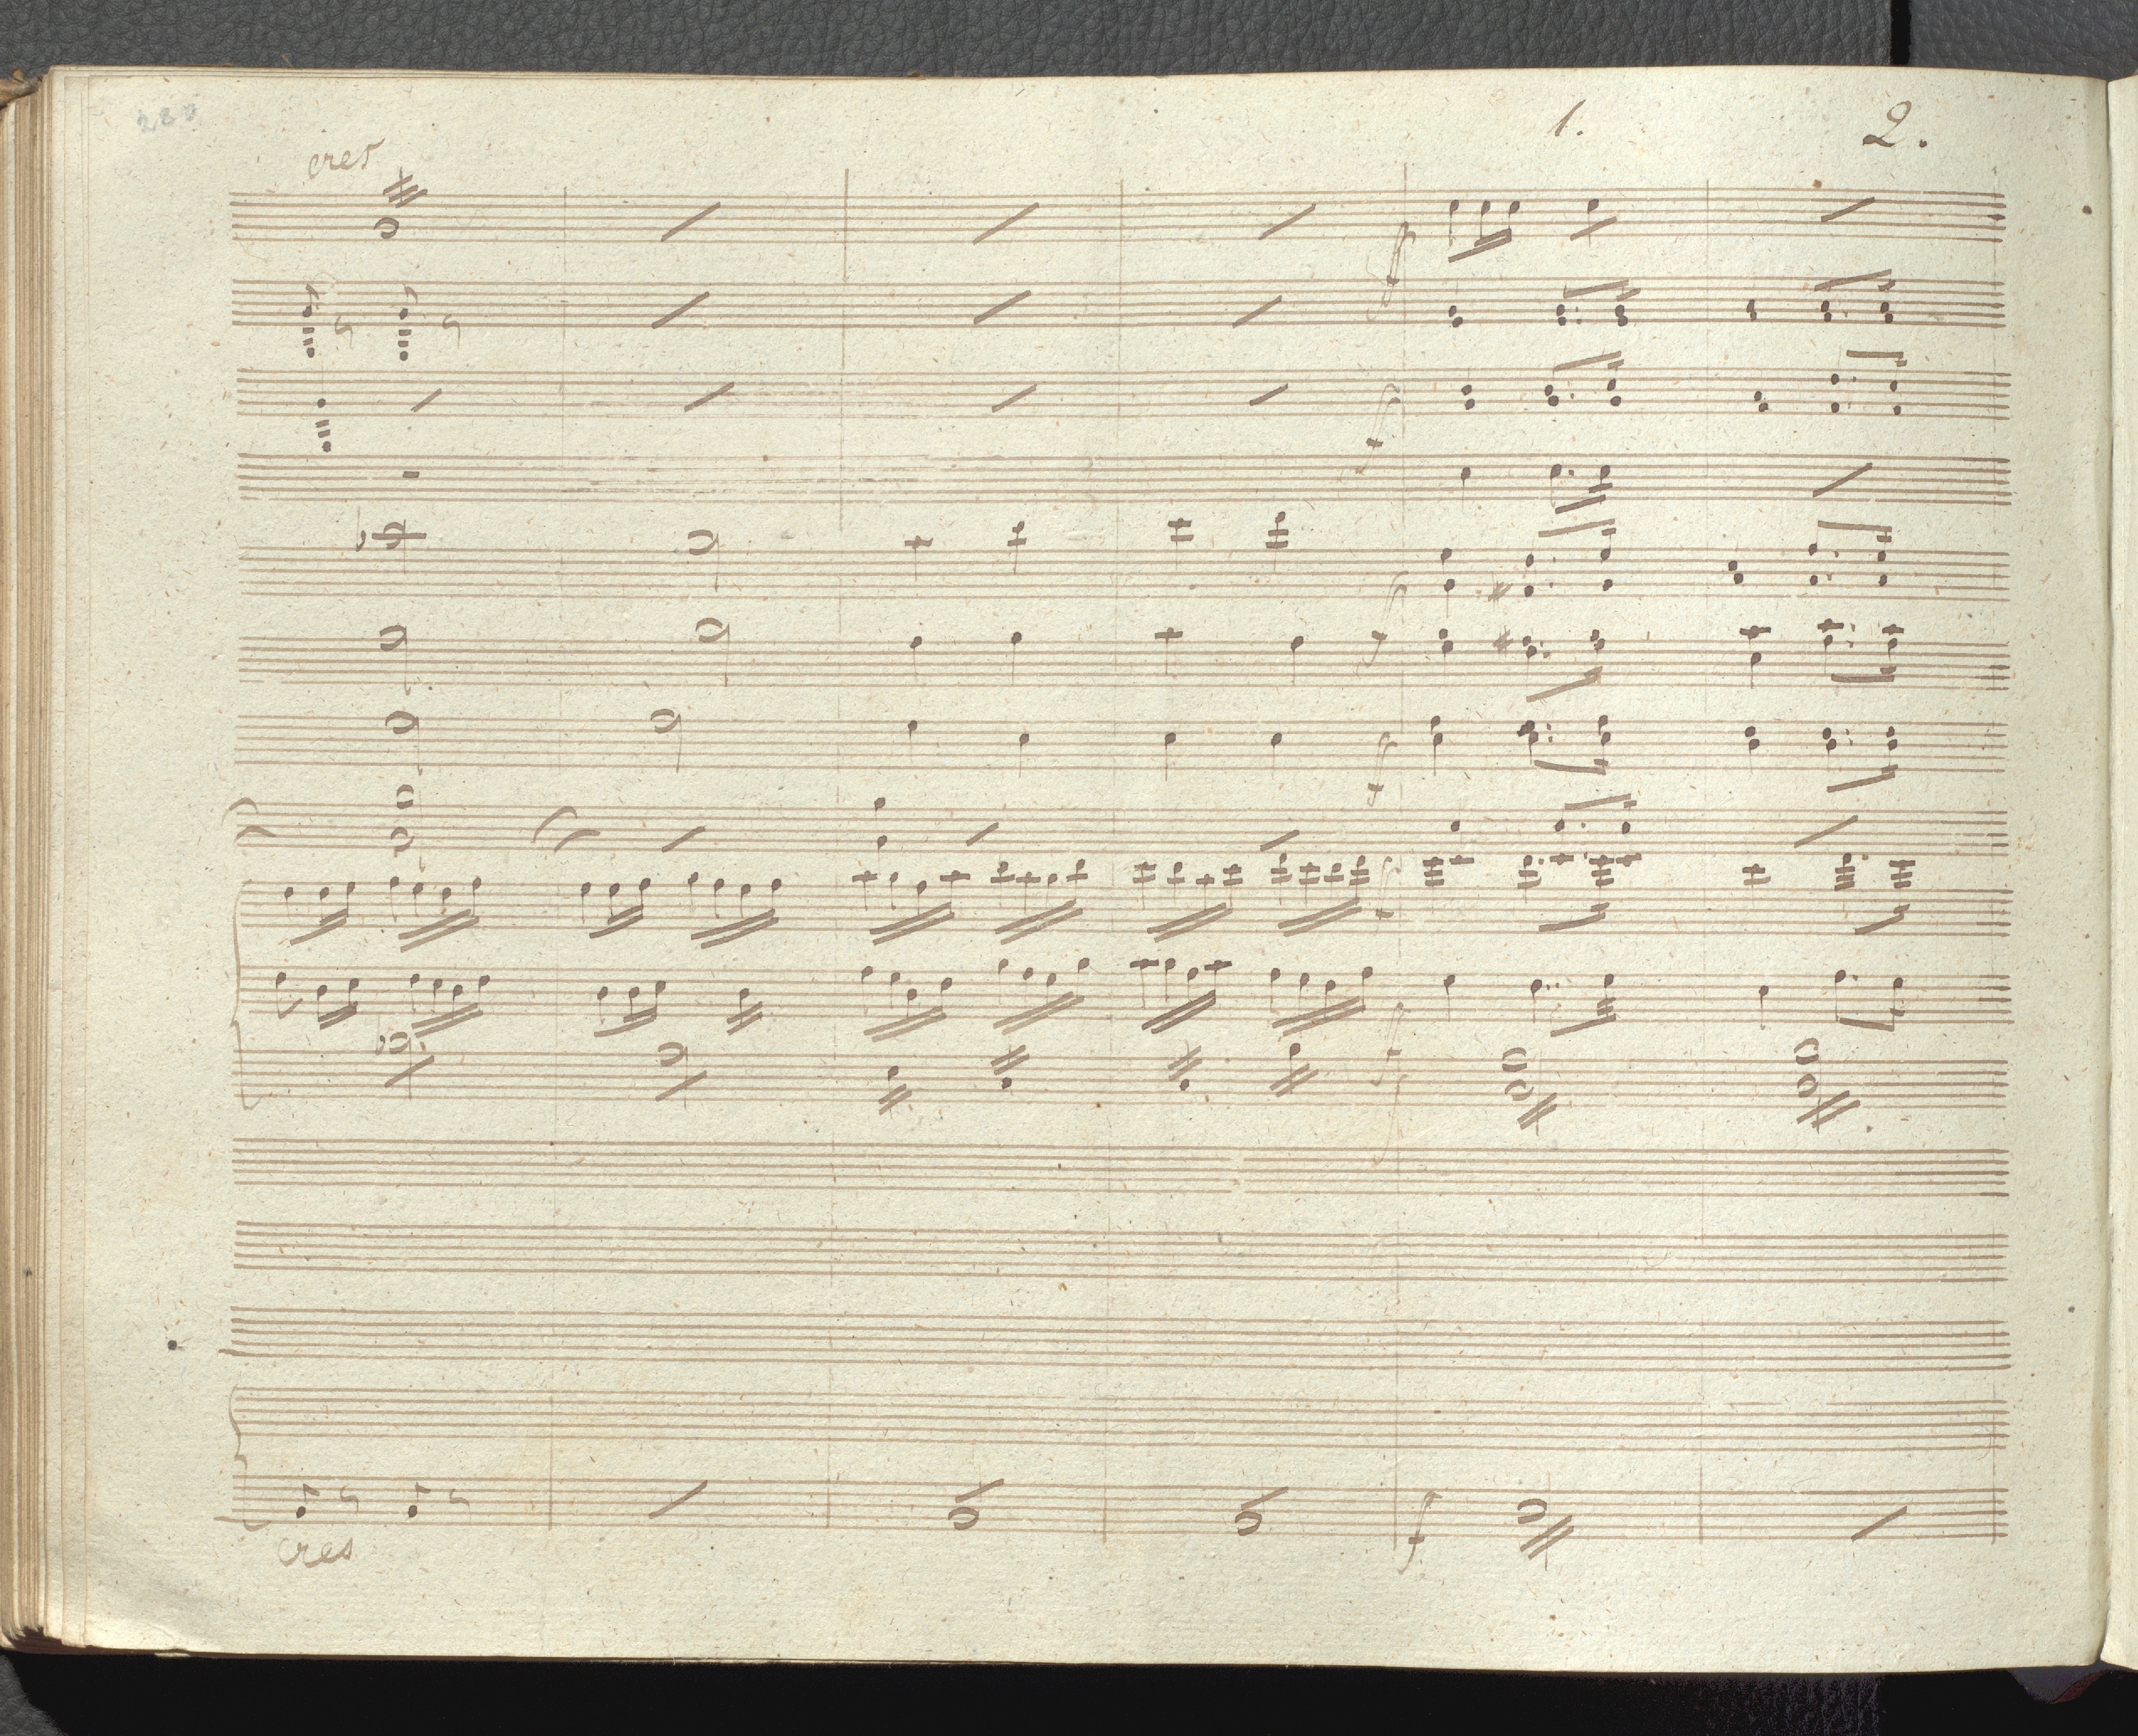 220
1. 2.
cres
f
f
f
f
f
f
f
f
cres